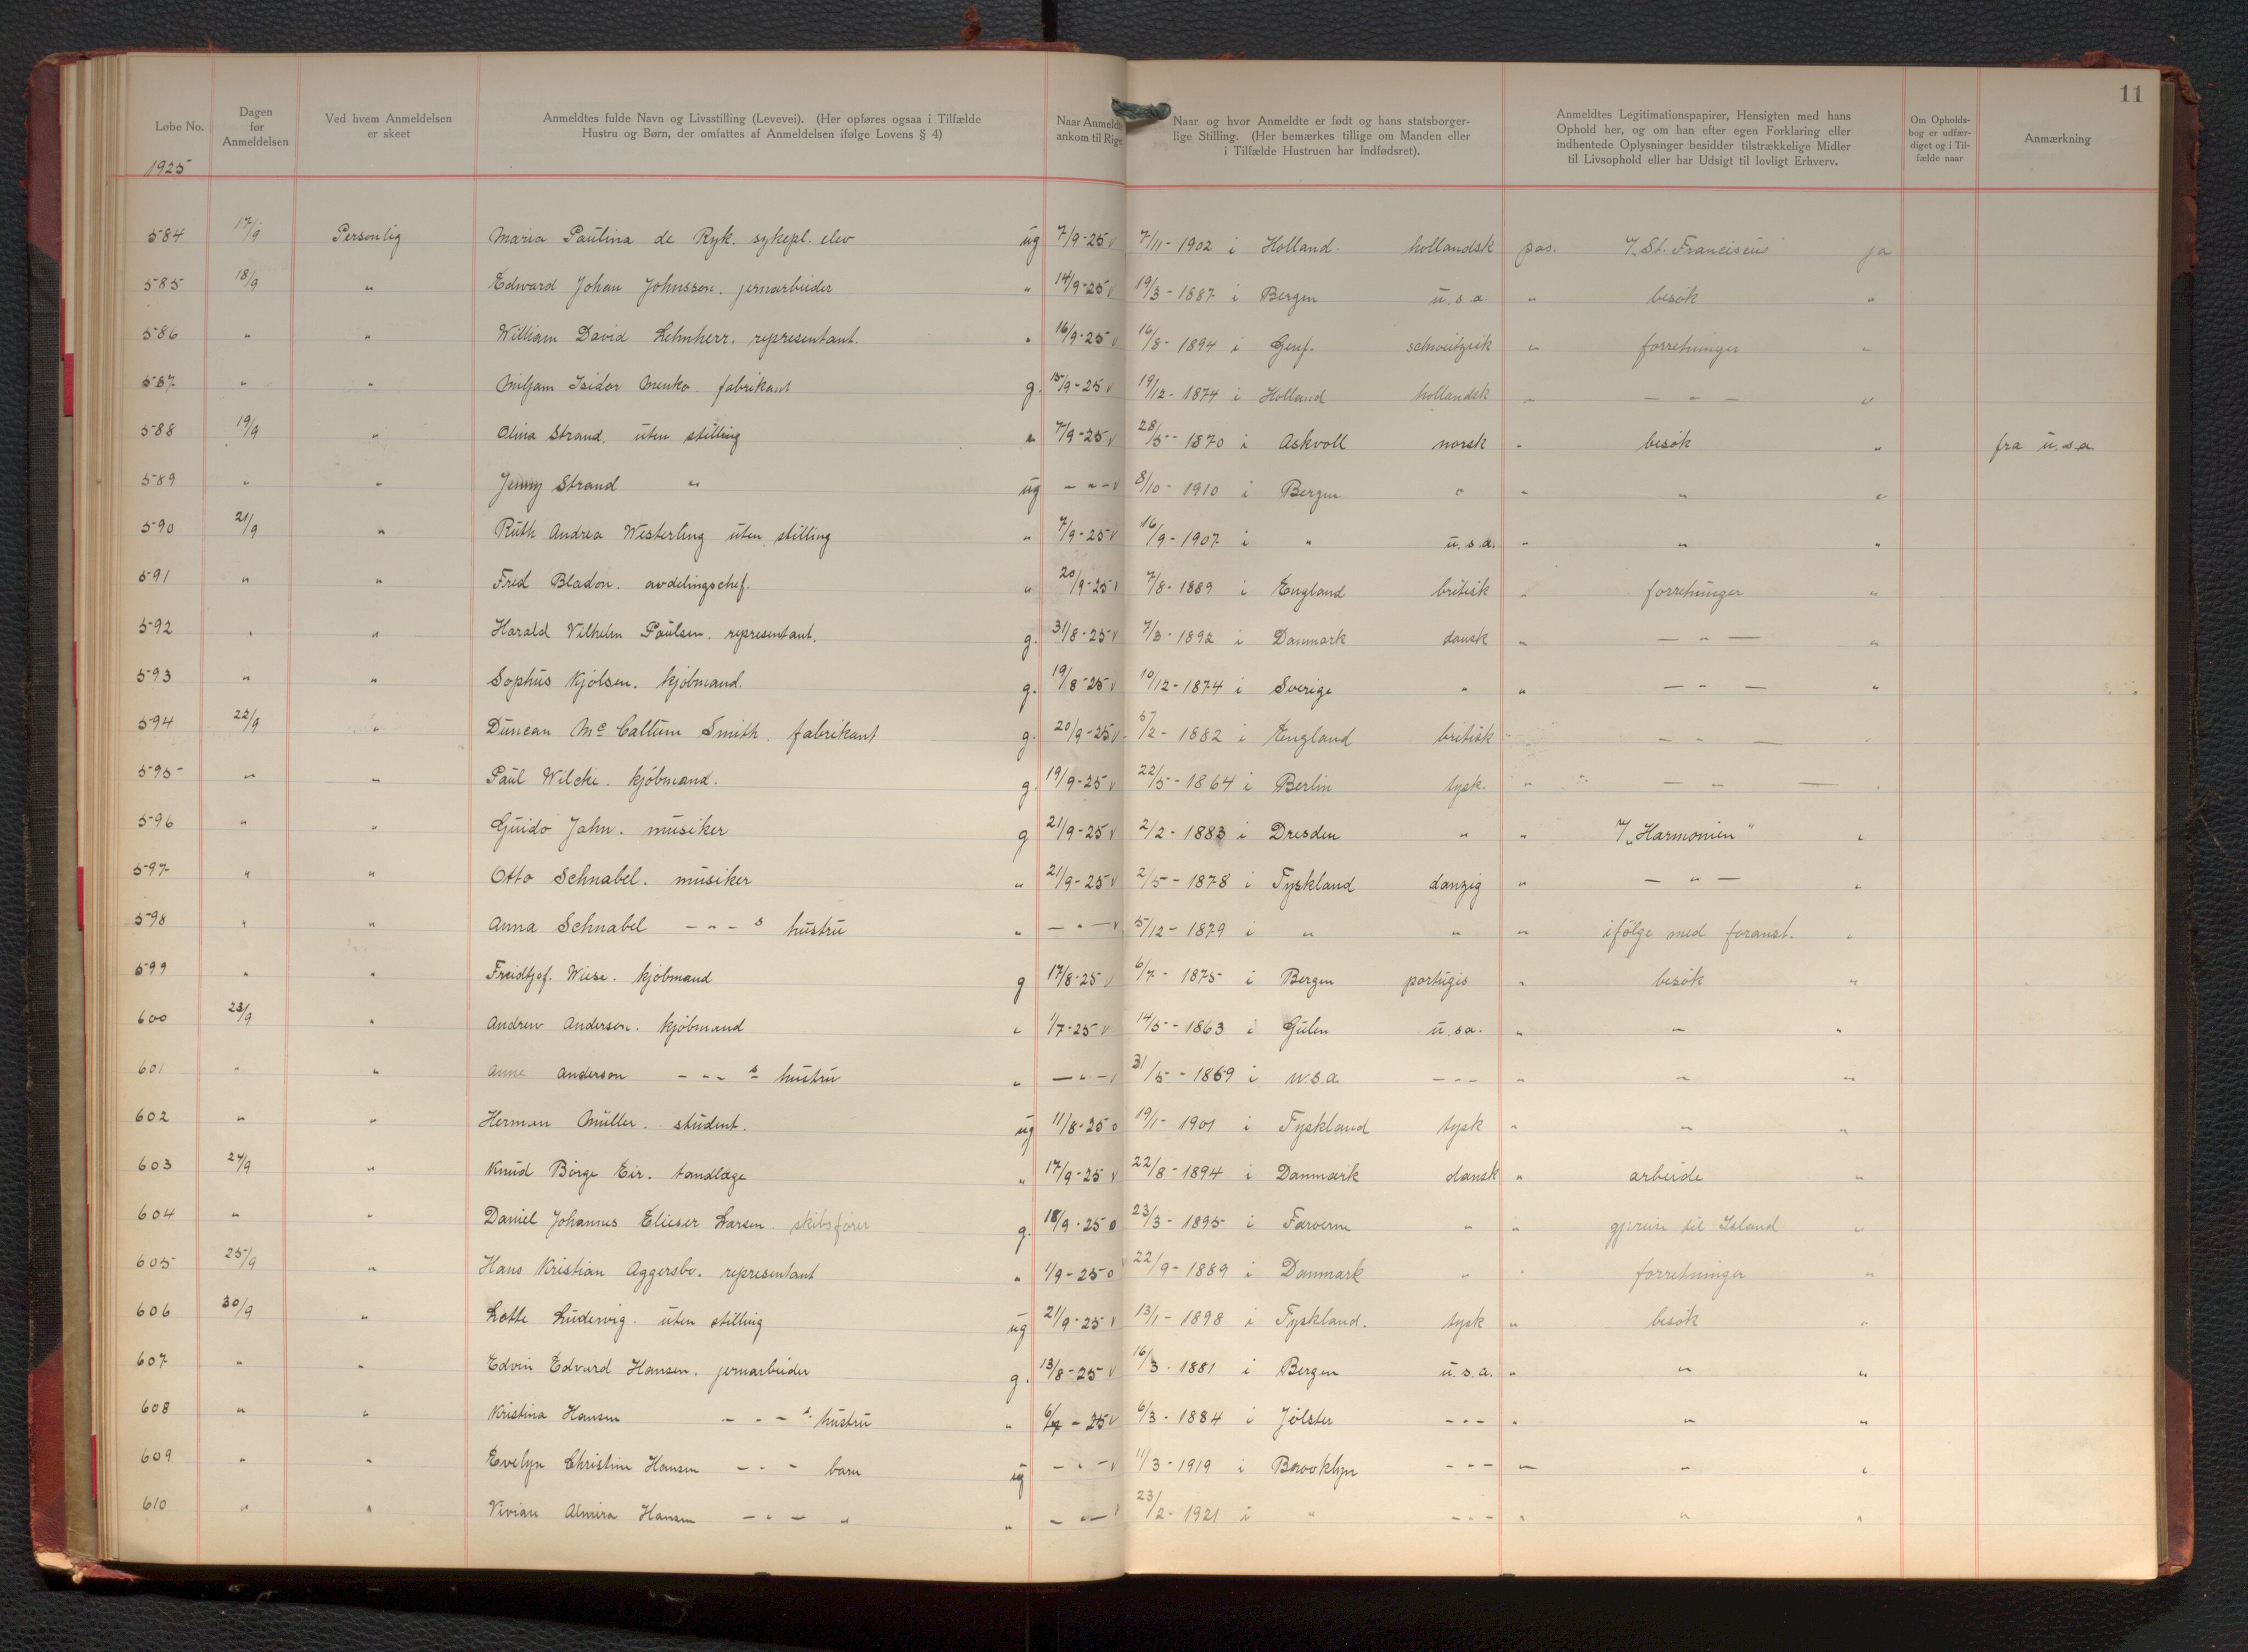 11
Løbe No.
Dagen før Anmeldelsen
Ved hvem Anmeldelsen er skeet
Anmeldtes fulde Navn og Livsstilling (Levevei). (Her opføres ogsaa i Tilfælde Hustru og Børn, der omfattes af Anmeldelsen ifølge Lovens § 4)
Naar Anmeldte ankom til Rige
Naar og hvor Anmeldte er født og hans statsborgerlige Stilling. (Her bemærkes tillige om Manden eller i Tilfælde Hustruen har Indfødsret).
Anmeldtes Legitimationspapirer, Hensigten med hans Ophold her, og om han efter egen Forklaring eller indhentede Oplysninger besidder tilstrækkelige Midler til Livsophold eller har Udsigt til lovligt Erhverv.
Om Opholdsbog er udfærdiget og i Tilfælde naar
Anmærkning
1925
584 17/9 Personlig Maria Paulina de Ryk. sykepl. elev ug 7/9-25 v 7/11-1902 i Holland. hollandsk pas. "St. Franciscus" ja
585 18/9 " " Edward Johan Johnsson. jernarbeider " 14/9-25 v 19/3-1887 i Bergen u.s.a. " besøk "
586 " " William David Lehnherr. representant. " 16/9-25 v 16/8-1894 i Genf. schweitzisk " forretninger "
587 " " Miljam Isidor Menko. fabrikant g. 15/9-25 v 19/12-1874 i Holland hollandsk " — " — "
588 19/9 " Olina Strand. uten stilling " 7/9-25 v 28/5-1870 i Askvoll norsk " besøk " fra u.s.a.
589 " " Jenny Strand " ug — " — v 8/10-1910 i Bergen " " " "
590 21/9 " Ruth Andrea Westerling uten stilling " 7/9-25 v 16/9-1907 i " u.s.a. " " "
591 " " Fred Bladon. avdelingschef. " 20/9-25 v 7/8-1889 i England britisk " forretninger "
592 " " Harald Vilhelm Paulsen. representant. g. 31/8-25 v 7/3-1892 i Danmark dansk " — " — "
593 " " Sophus Kjølsen. kjøbmand. g. 19/8-25 v 10/12-1874 i Sverige " " — " — "
594 22/9 " Duncan Mc Callum Smith. fabrikant g. 20/9-25 v 5/2-1882 i England britisk " — " — "
595 " " Paul Wilcke. kjøbmand. g. 19/9-25 v 22/5-1864 i Berlin tysk. " — " — "
596 " " Guido Jahn. musiker g 21/9-25 v 2/2-1883 i Dresden " " "Harmonien" "
597 " " Otto Schnabel. musiker " 21/9-25 v 2/5-1878 i Tyskland danzig " — " — "
598 " " Anna Schnabel — " — s hustru " — " — v 5/12-1879 i " " " ifølge med foranst. "
599 " " Freidtjof. Wiese. kjøbmand g 17/8-25 v 6/7-1875 i Bergen portugis " besøk "
600 23/9 " Andrew Anderson. kjøbmand " 1/7-25 v 14/5-1863 i Gulen u.s.a. " " "
601 " " Anne Anderson — " — s hustru " — " — v 31/5-1869 i u.s.a. — " — " " "
602 " " Herman Müller. student. ug 11/8-25 o 19/1-1901 i Tyskland tysk " " "
603 24/9 " Knud Börge Eir. tandlæge " 17/9-25 v 22/8-1894 i Danmark dansk " arbeide "
604 " " Daniel Johannes Elieser Larsen. skibsfører g. 18/9-25 o 23/3-1895 i Færøerne " " gj:reise til Island "
605 25/9 " Hans Kristian Aggersbo. representant " 1/9-25 o 22/9-1889 i Danmark " " forretninger "
606 30/9 " Lotte Ludewig. uten stilling ug 21/9-25 v 13/1-1898 i Tyskland. tysk " besøk "
607 " " Edvin Edvard Hansen. jernarbeider g. 13/8-25 v 16/3-1881 i Bergen u.s.a. " " "
608 " " Kristina Hansen — " — s. hustru " — 25 v 6/3-1884 i Jölster — " — " " "
609 " " Evelyn Christine Hansen — " — barn ug — " — v 11/3-1919 i Brooklyn — " — " " "
610 " " Vivian Almira Hansen — " — " " — " — v 23/2-1921 i " — " — " " "